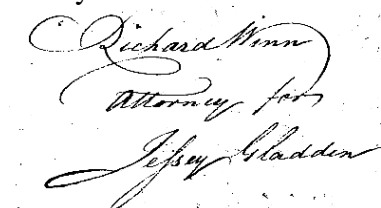 Richard Winn
Attorney for
Jessey Gladden